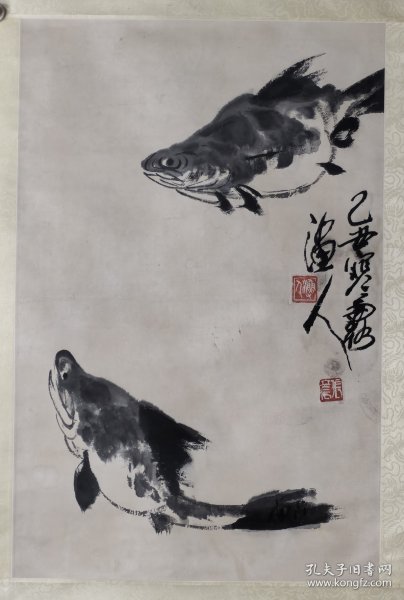 己丑寒露
人
孔夫子旧书网
www.kongfz.com